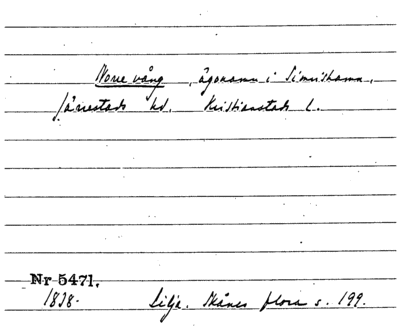 Norre vång, ägonamn i Simrishamn,
Järrestads hd. Kristianstads l.
Nr 5471.
1838. Lilja. Skånes flora s. 199.